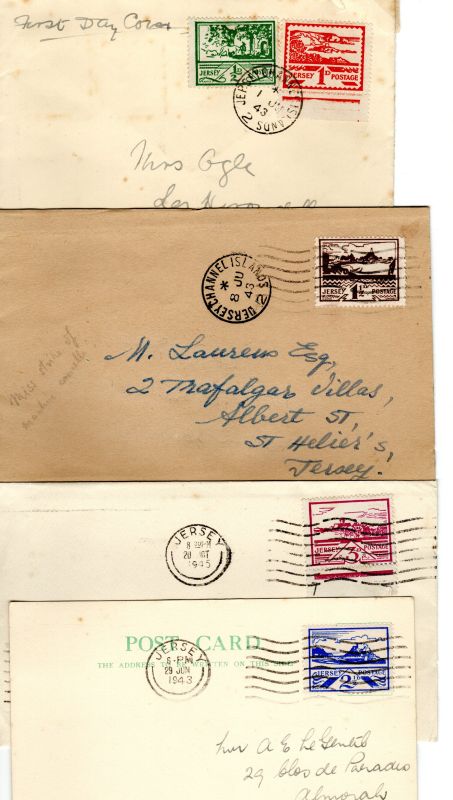 First Day Cover
JERSEY ½D
JERSEY 1D POSTAGE
JERSEY CHANNEL ISLANDS
*
1 JU
43
2
Mrs Ogle
JERSEY CHANNEL ISLANDS
*
8 JU
43
2
JERSEY 1½D POSTAGE
Miss strike of
machine cancell.
M. Laurens Esq,
2 Trafalgar Villas,
Albert St,
St Helier's,
Jersey.
JERSEY
8
1945
JERSEY 3D POSTAGE
POST CARD
THE ADDRESS TO BE WRITTEN ON THIS SIDE
JERSEY
6-PM
29 JUN
1943
JERSEY 2½D POSTAGE
A E Le Gentil
29 Clos de Paradis
Almorah